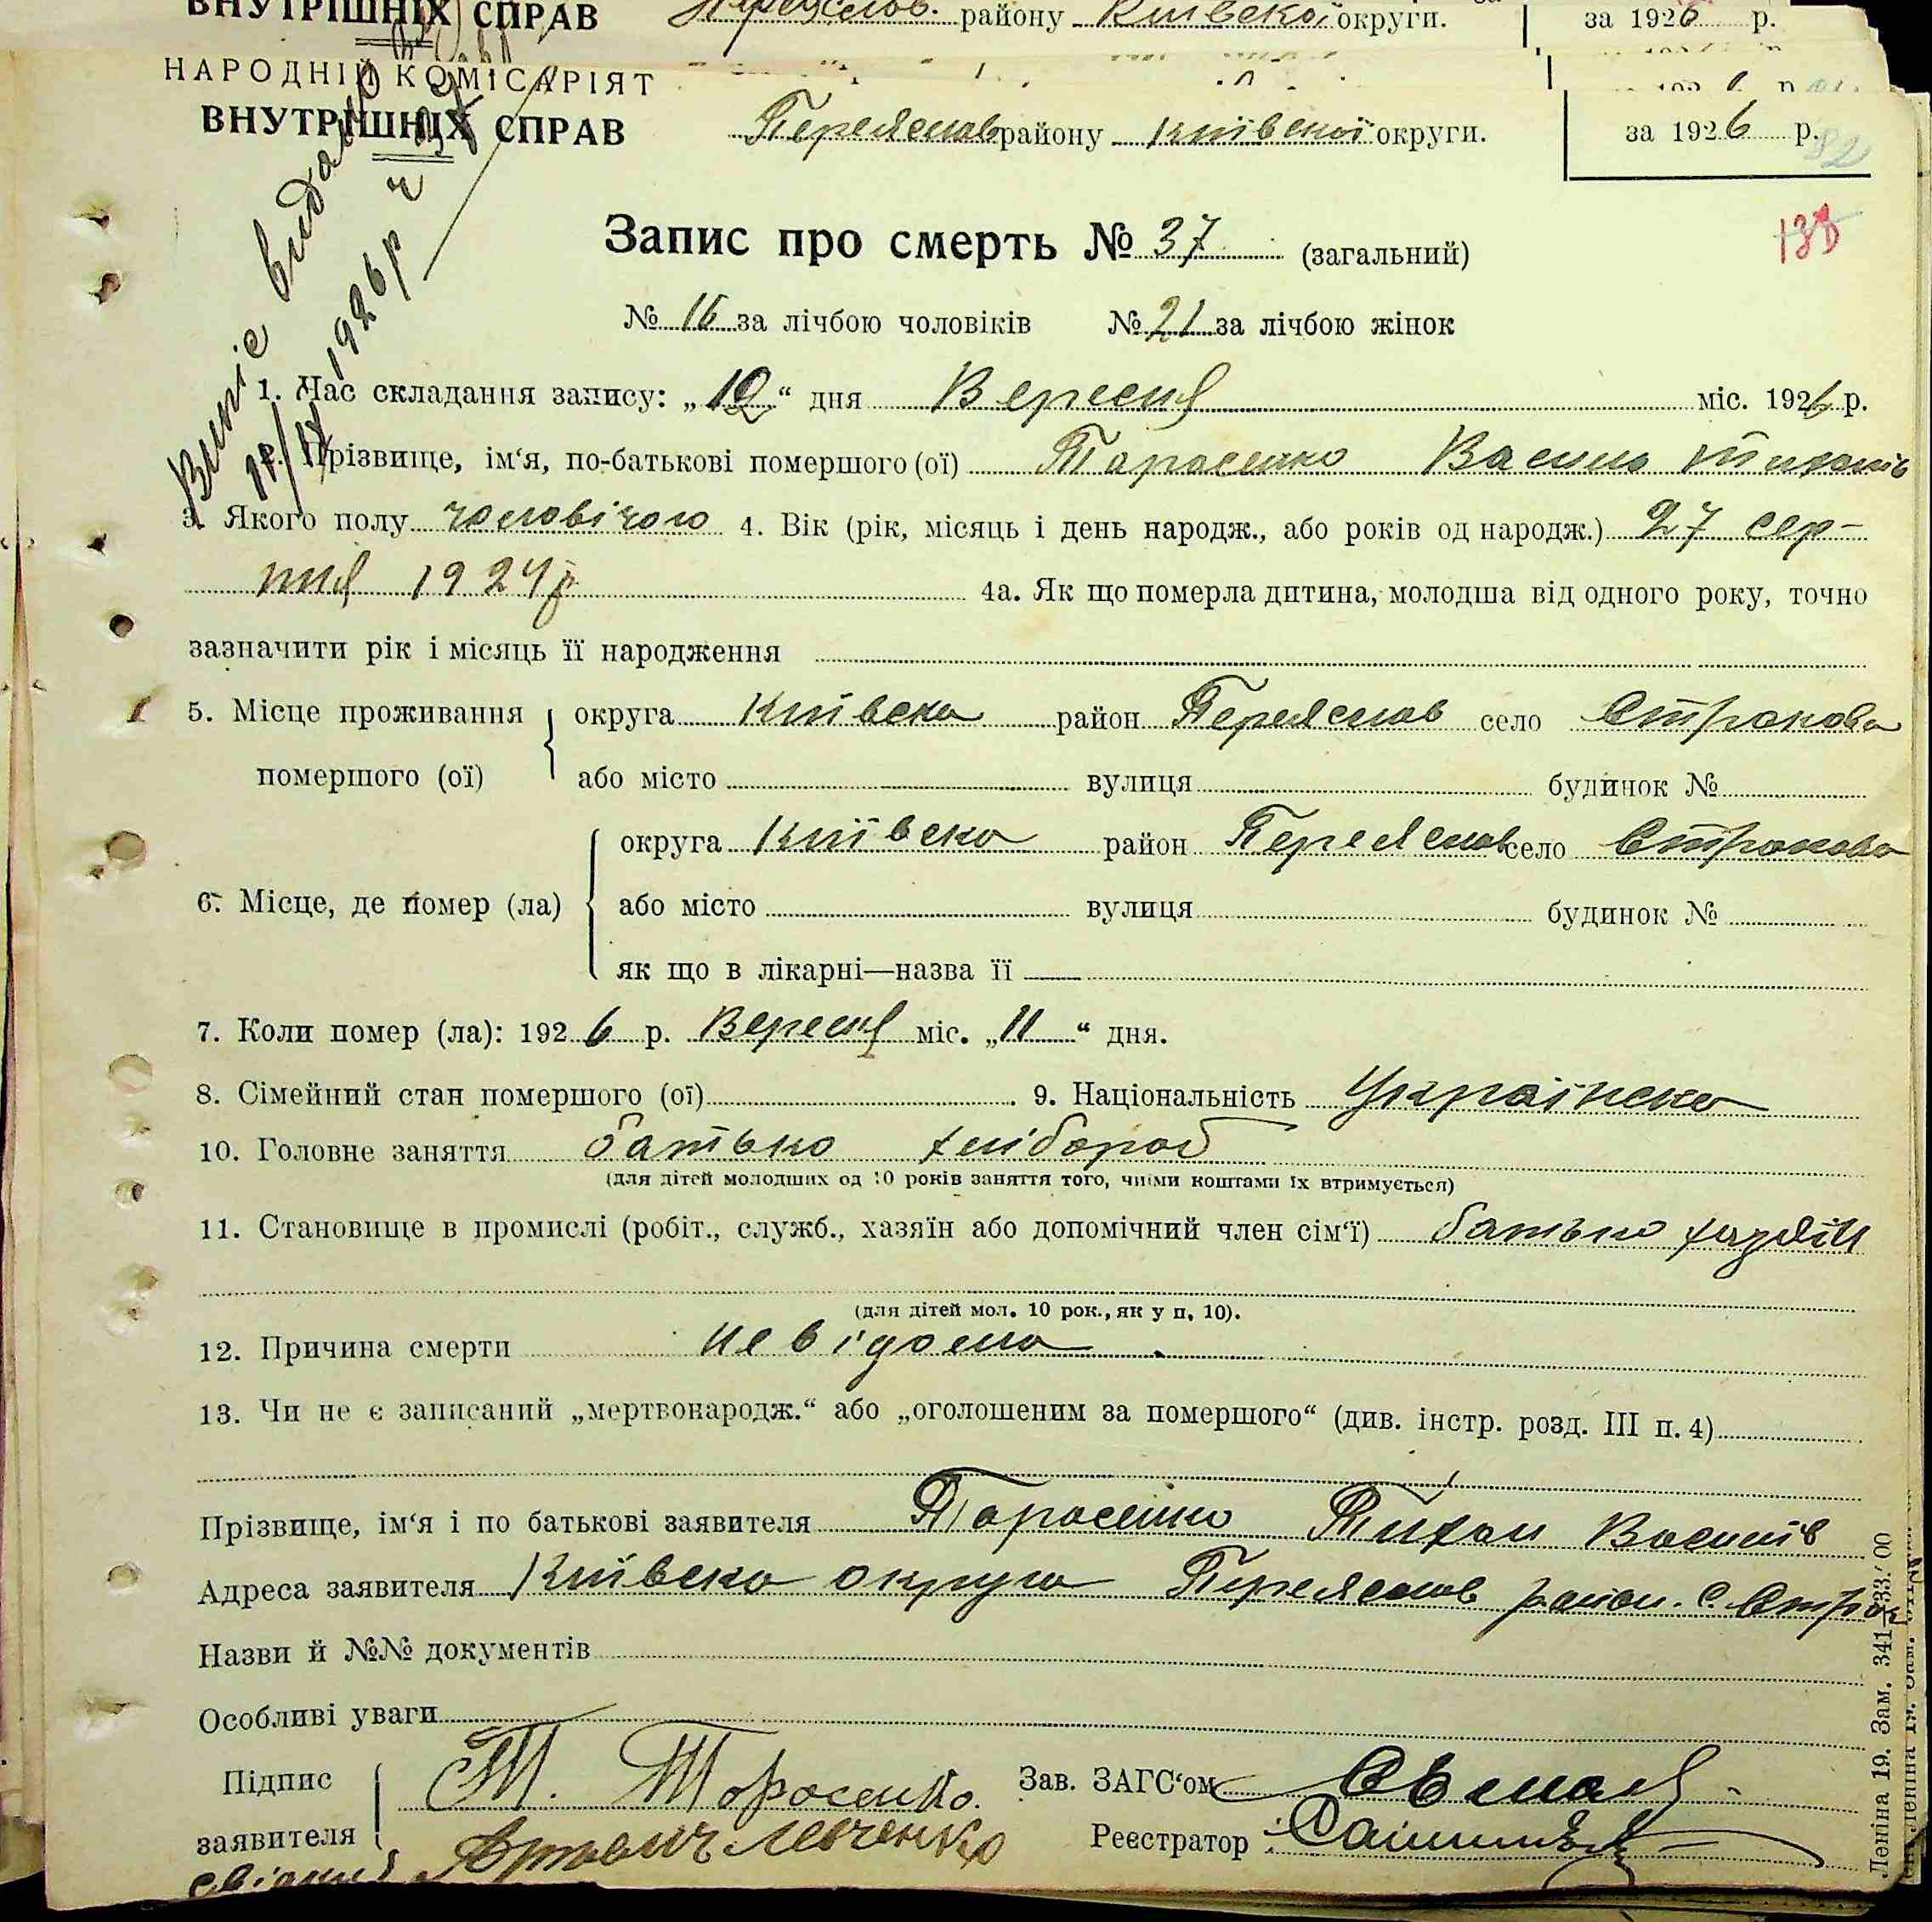 ВНУТРІШНІХ СПРАВ району Київської округи. за 1926 р.
НАРОДНІЙ КОМІСАРІЯТ
ВНУТРІШНІХ СПРАВ Переяслав району Київської округи. за 1926 р. 82
Запис про смерть № 37 (загальний)
№ 16 за лічбою чоловіків № 21 за лічбою жінок
1. Час складання запису: „12“ дня Вересня міс. 1926 р.
2. Прізвище, ім‘я, по-батькові помершого (ої) Тарасенко Василь Тихонів
3. Якого полу чоловічого 4. Вік (рік, місяць і день народж., або років од народж.) 27 сер-
пня 1924 р 4а. Як що померла дитина, молодша від одного року, точно
зазначити рік і місяць її народження
5. Місце проживання округа Київська район Переяслав село Строкова
помершого (ої) або місто вулиця будинок №
округа Київська район Переяслав село Строкова
6. Місце, де помер (ла) або місто вулиця будинок №
як що в лікарні—назва її
7. Коли помер (ла): 1926 р. Вересня міс. „11“ дня.
8. Сімейний стан помершого (ої) 9. Національність Українська
10. Головне заняття батько хлібороб
(для дітей молодших од 10 років заняття того, чиїми коштами їх втримується)
11. Становище в промислі (робіт., служб., хазяїн або допомічний член сім‘ї) батько хазяїн
(для дітей мол. 10 рок., як у п. 10).
12. Причина смерти невідома
13. Чи не є записаний „мертвонародж.“ або „оголошеним за помершого“ (див. інстр. розд. III п. 4)
Прізвище, ім‘я і по батькові заявителя Тарасенко Тихон Василів
Адреса заявителя Київська округа Переяслав район. с. Строк
Назви й №№ документів
Особливі уваги
Підпис Т. Тарасенко. Зав. ЗАГС‘ом
заявителя Левченко Реєстратор
Випис видано
17/IX 1926 р
Леніна 19. Зам. 341—33.